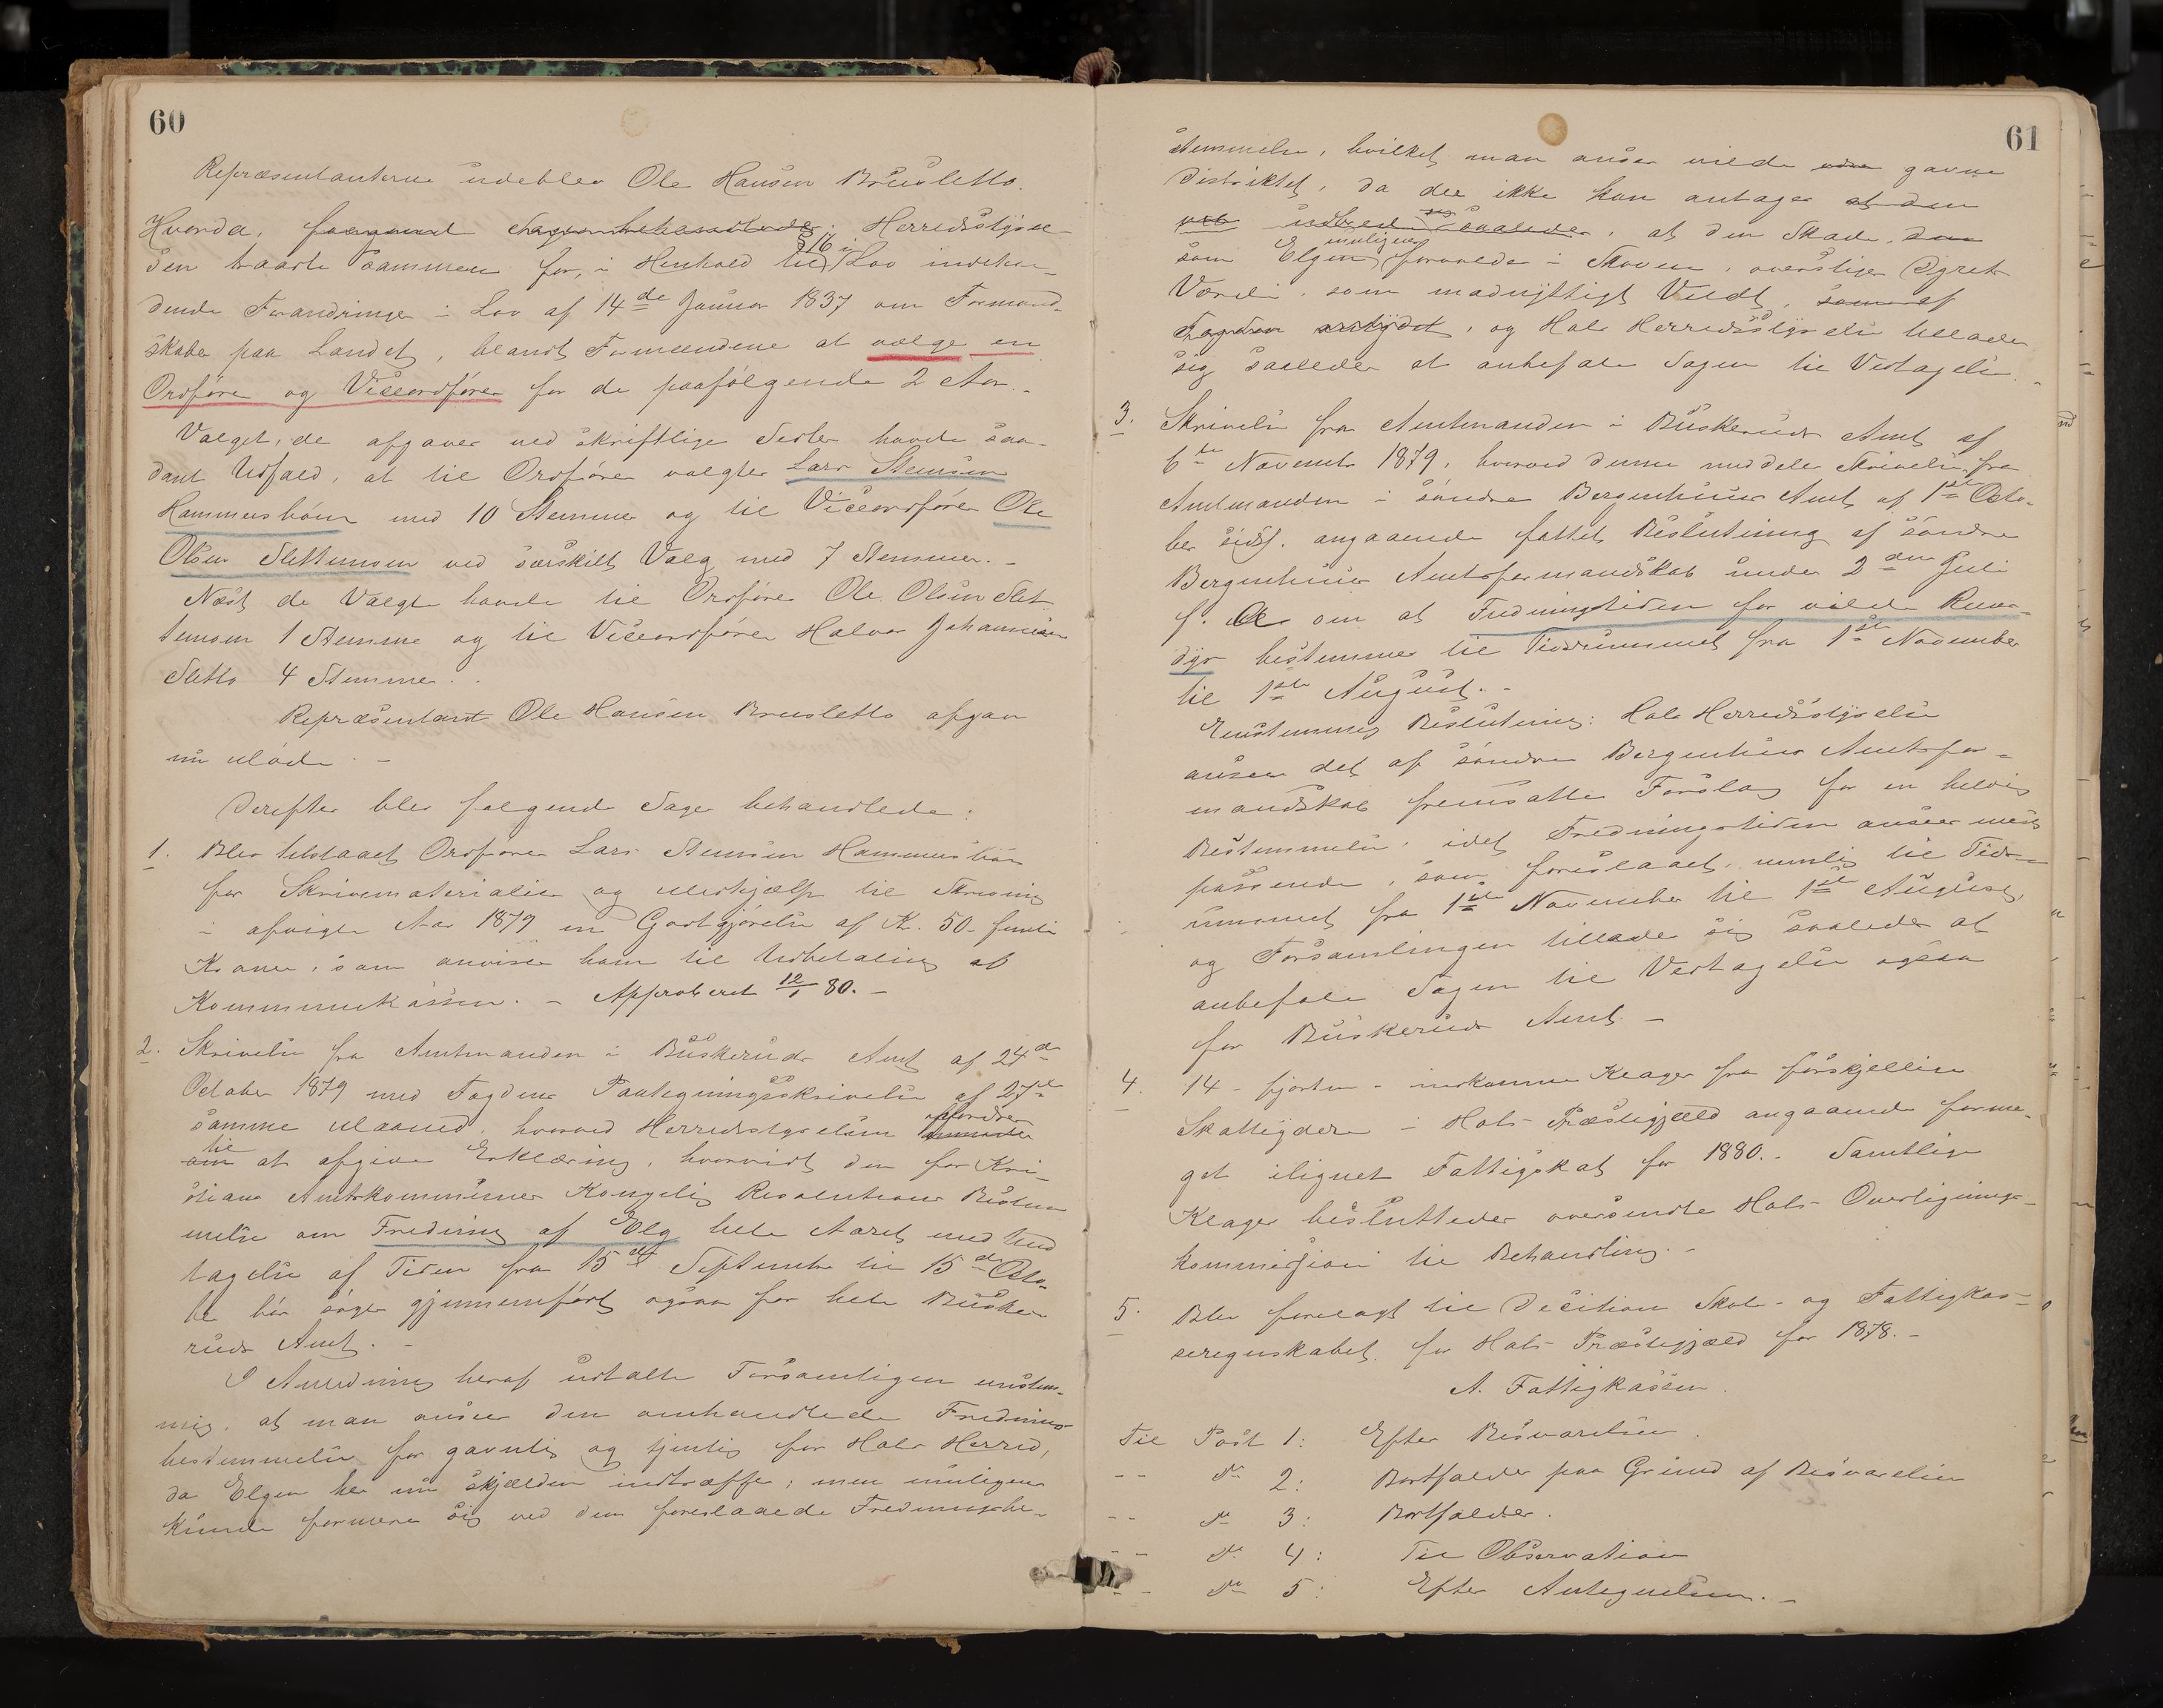 60
Repræsentanterne udeblev Ole Hansen Brusletto.
Hvorda, foregaaende Sager behandledes, Herredsstyrel-
§ 16 i
sen traadte sammen for, i Henhold til Lov indehol-
dende Forandringer i Lov af 14de Januar 1837 om Formand-
skaber paa Landet, blandt Formændene at vælge en
Ordfører og Viceordfører for de paafølgende 2 Aar. -
Valget, der afgaves ved skriftlige Sedler havde saa-
dant Udfald, at til Ordfører valgtes Lars Stensen
Hammersbøen med 10 Stemmer og til Viceordfører Ole
Olsen Slettemoen ved særskilt Valg med 7 Stemmer. -
Næst de Valgte havde til Ordfører Ole Olsen Slet-
temoen 1 Stemme og til Viceordfører Halvor Johannesen
Sletto 4 Stemmer. -
Repræsentant Ole Hansen Brusletto afgav
nu Møde. -
Derefter blev følgende Sager behandlede:
1. Blev tilstaaet Ordfører Lars Stensen Hammersbøen
for Skrivematerialier og Medhjælp til Skrivning
i afvigte Aar 1879 en Godtgjørelse af Kr. 50 femti
Kroner, som anvises ham til Udbetaling af
Kommunekassen. - Approberet 12/1 80. -
2. Skrivelse fra Amtmanden i Buskeruds Amt af 24de
October 1879 med Fogdens Paategningsskrivelse af 27de
samme Maaned, hvorved Herredsstyrelsen
opfordres
til
om at afgive Erklæring, hvorvidt den for Kri-
stians Amtskommuner Kongelig Resolutions Bestem-
melse om Fredning af Elg hele Aaret med Und-
tagelse af Tiden fra 15de September til 15de Octo-
ber bør søges gjennemført ogsaa for hele Buske-
ruds Amt. -
I Anledning heraf udtalte Forsamlingen enstem-
mig, at man anser den omhandlede Frednings-
bestemmelse for gavnlig og tjenlig for Hols Herred,
da Elgen her nu skjælden indtræffer; men muligens
kunde formere sig ved den foreslaaede Fredningsbe-
61
stemmelse, hvilket man anser vilde være gavne
Distriktet, da der ikke kan antages at den
udbreder sig saaledes, at den Skade, den
muligens
som Elgen forvolder i Skoven, overstiger Dyrets
Værdi, som madnyttigt Vildt, som af
Fogden antydet, og Hols Herredsstyrelse tillader
sig saaledes at anbefale Sagen til Vedtagelse. -
3. Skrivelse fra Amtmanden i Buskeruds Amt af
6te November 1879, hvorved denne meddeler Skrivelse fra
Amtmanden i søndre Bergenhuus Amt af 1ste Octo-
ber sidst. angaaende fattet Beslutning af søndre
Bergenhuus Amtsformandskab under 2den Juli
f. A. om at Fredningstiden for vilde Rens-
dyr bestemmes til Tidsrummet fra 1ste November
til 1ste August. -
Enstemmig Beslutning: Hols Herredsstyrelse
anser det af søndre Bergenhuus Amtsfor-
mandskab fremsatte Forslag for en heldig
Bestemmelse, idet Fredningstiden ansees mest
passende, som foreslaaet, nemlig til Tids-
rummet fra 1ste November til 1ste August,
og Forsamlingen tillader sig saaledes at
anbefale Sagen til Vedtagelse ogsaa
for Buskeruds Amt. -
4. 14 - fjorten - indkomne Klager fra forskjellige
Skatteydere i Hols Præstegjæld angaaende forme-
get ilignet Fattigskat for 1880. - Samtlige
Klager besluttedes oversendte Hols Overlignings-
kommission til Behandling. -
5. Blev forelagt til Decition Skole- og Fattigkas-
seregnskabet for Hols Præstegjæld for 1878. -
A. Fattigkassen.
Til Post 1: Efter Besvarelsen.
-- do 2: Bortfalder paa Grund af Besvarelsen
-- do 3: Bortfalder.
-- do 4: Til Observation
-- do 5: Efter Antegnelsen. -